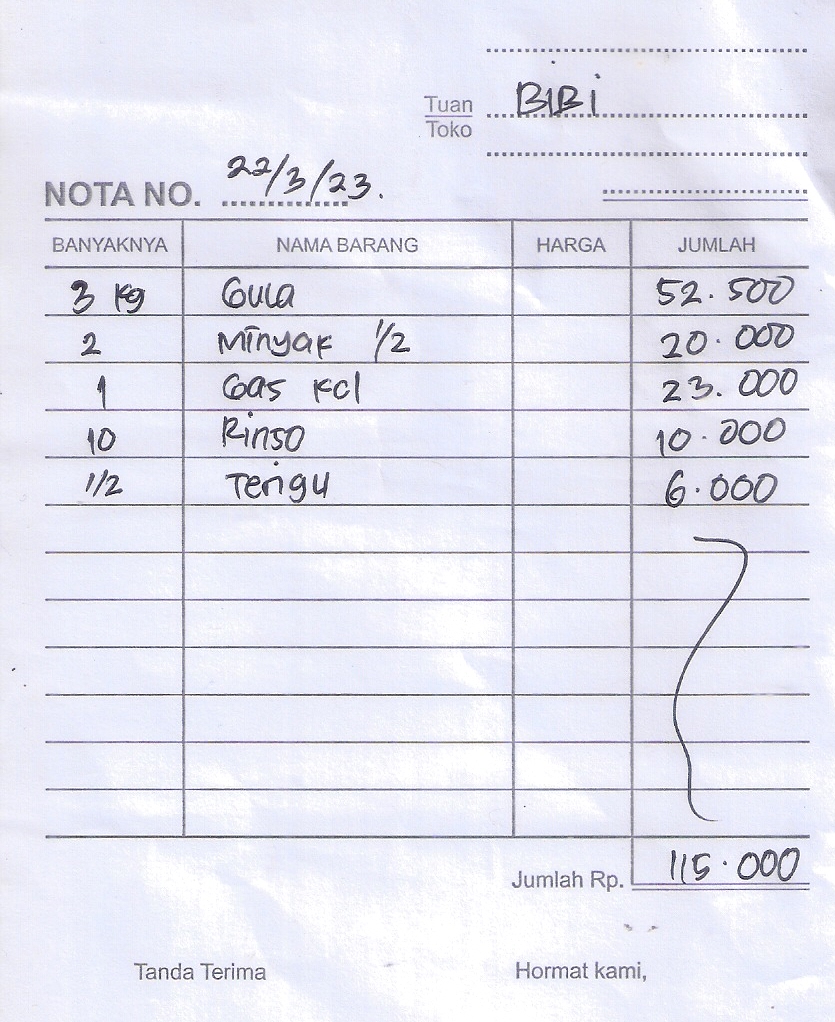 BiBi
Tuan
Toko
NOTA NO. 22/3/23.
BANYAKNYA NAMA BARANG HARGA JUMLAH
3 Kg Gula 52.500
2 Minyak 1/2 20.000
1 Gas Kcl 23.000
10 Rinso 10.000
1/2 Terigu 6.000
Jumlah Rp. 115.000
Tanda Terima Hormat kami,